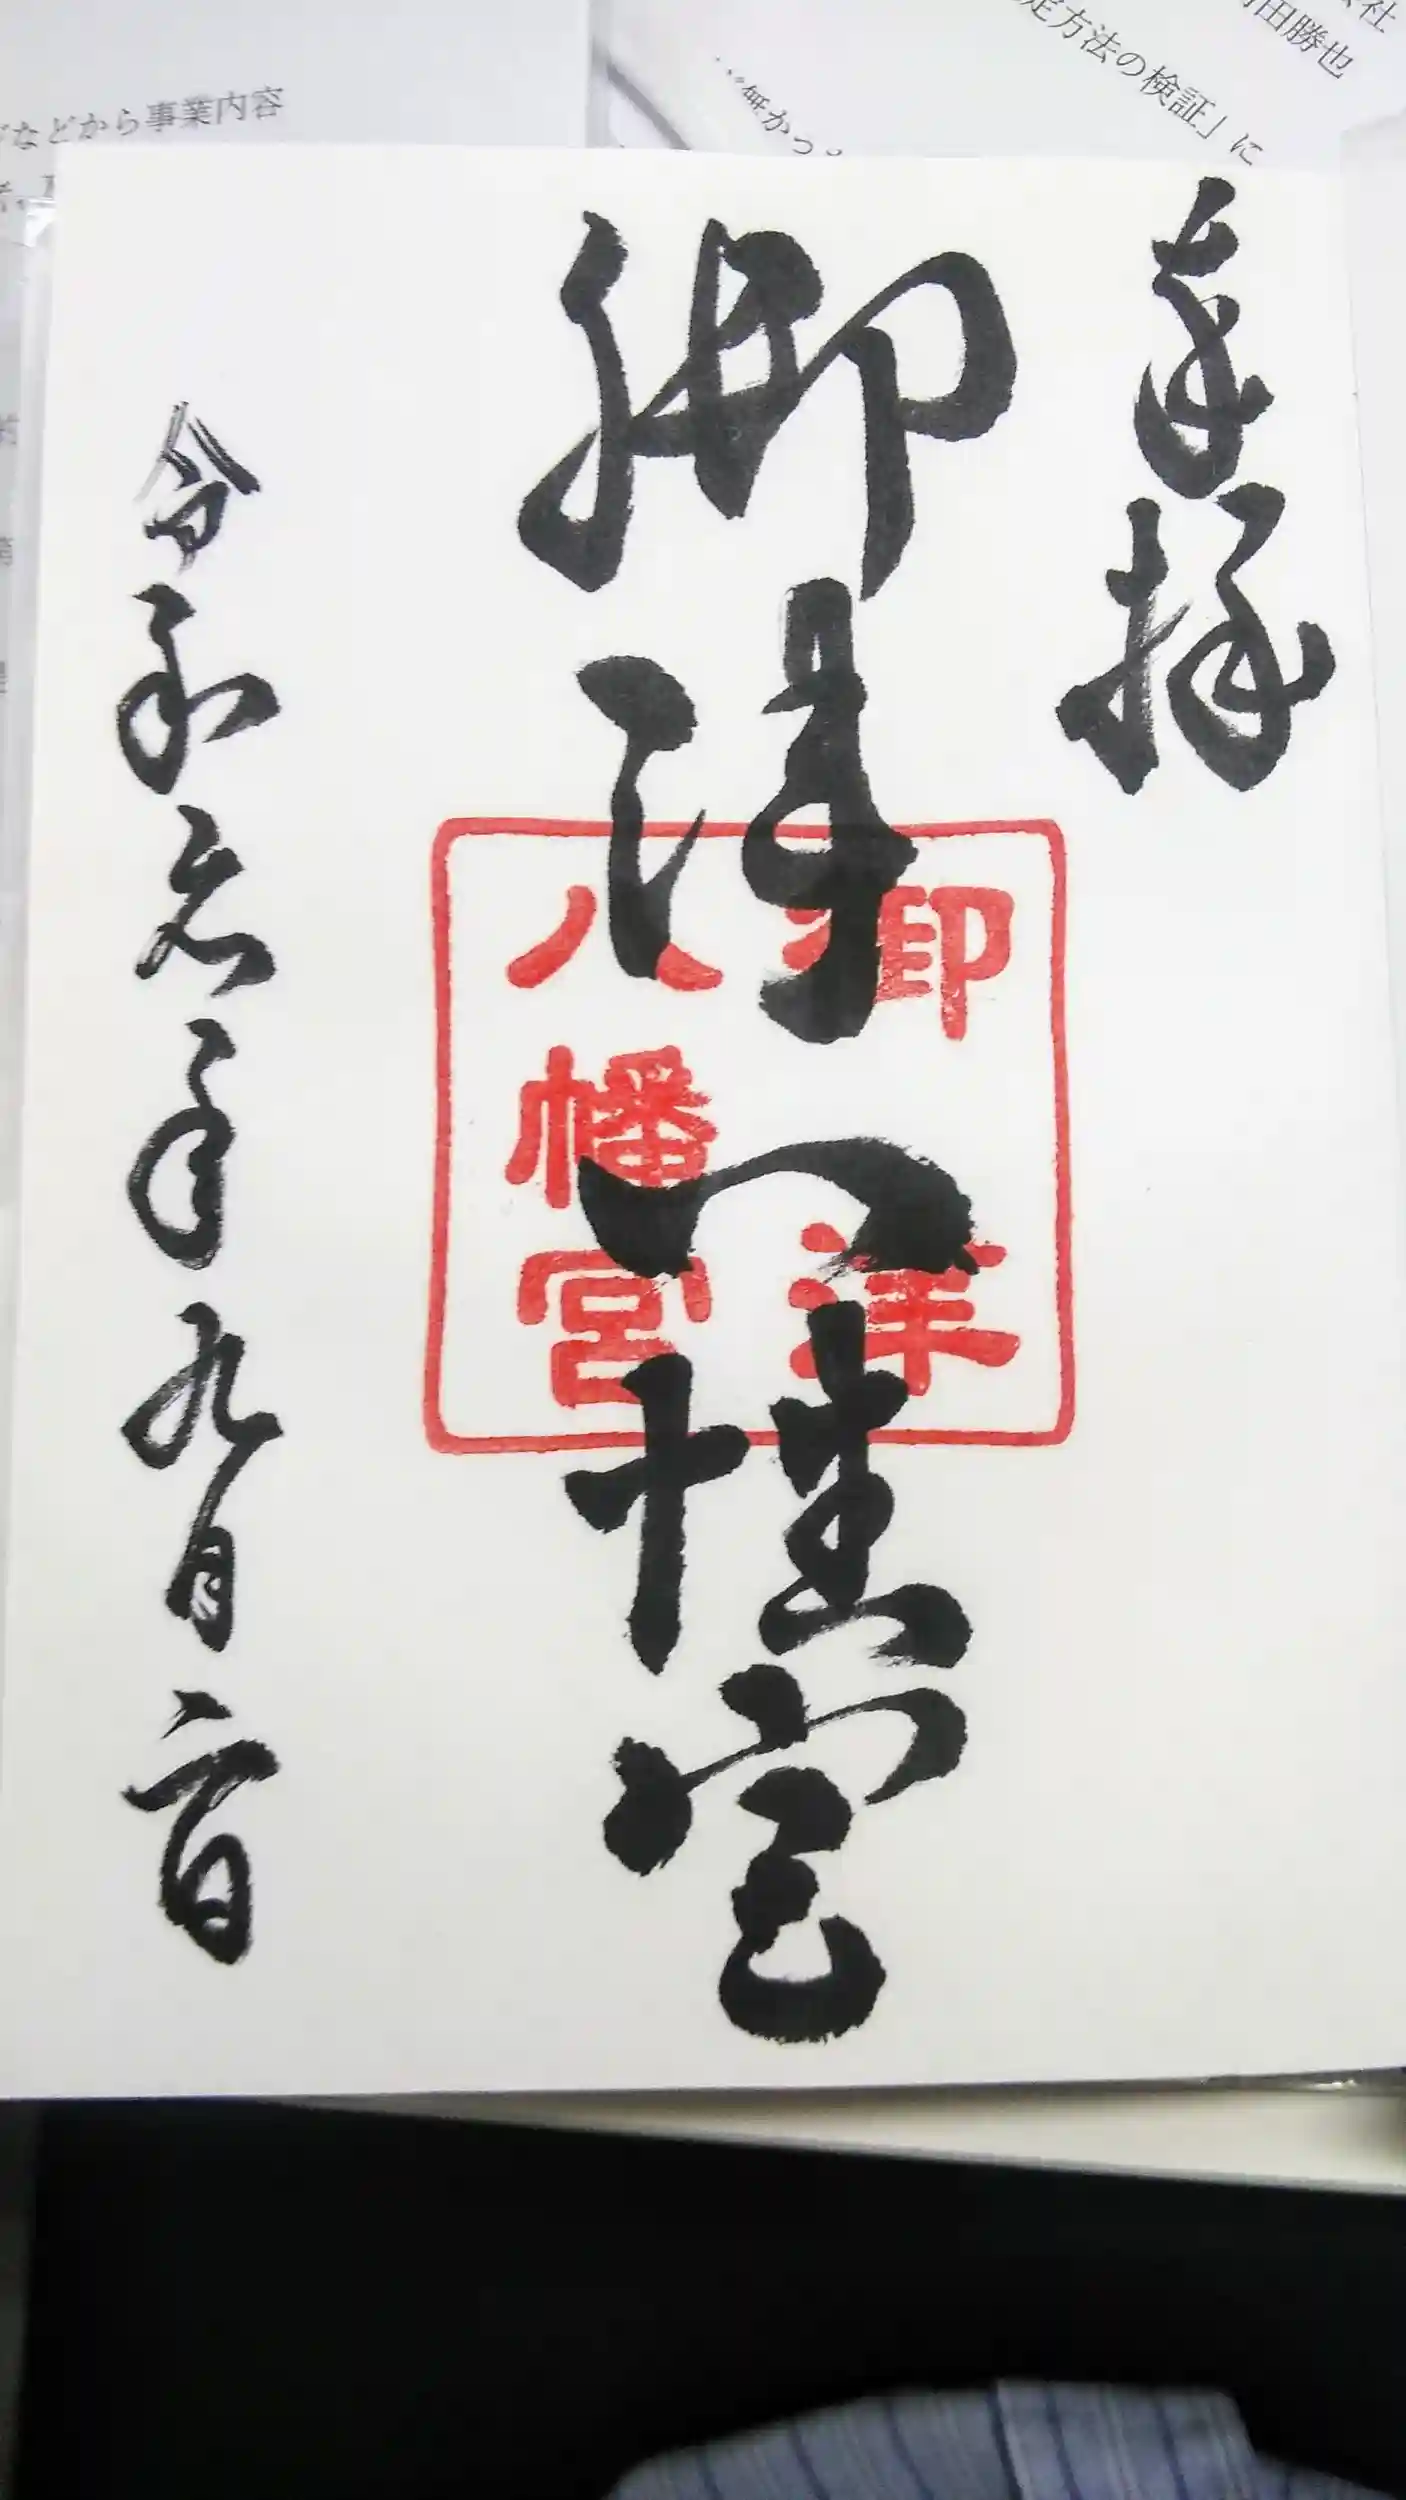 などから事業内容
定方法の検証」に
田勝也
奉拝
御津八幡宮
御津
八幡宮
令和元年九月二日